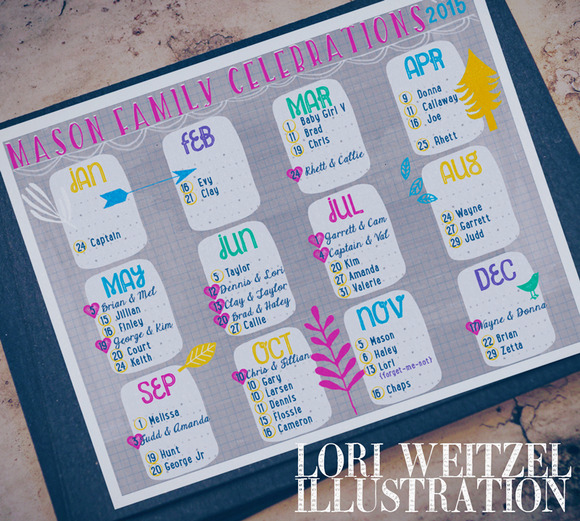 MASON FAMILY CELEBRATIONS 2015
JAN
24 Captain
FEB
16 Evy
21 Clay
MAR
1 Baby Girl V
11 Brad
19 Chris
Rhett & Callie
APR
9 Donna
11 Callaway
16 Joe
25 Rhett
MAY
Brian & Mel
15 Jillian
16 Finley
19 George & Kim
20 Court
24 Keith
JUN
5 Taylor
12 Dennis & Lori
Clay & Taylor
Brad & Haley
27 Callie
JUL
Garrett & Cam
Captain & Val
20 Kim
27 Amanda
31 Valerie
AUG
24 Wayne
27 Garrett
29 Judd
SEP
1 Melissa
Judd & Amanda
19 Hunt
20 George Jr
OCT
Chris & Jillian
10 Gary
10 Larsen
11 Dennis
15 Flossie
16 Cameron
NOV
5 Mason
8 Haley
13 Lori
(forget-me-not)
16 Chaps
DEC
Wayne & Donna
22 Brian
29 Zetta
LORI WEITZEL
ILLUSTRATION